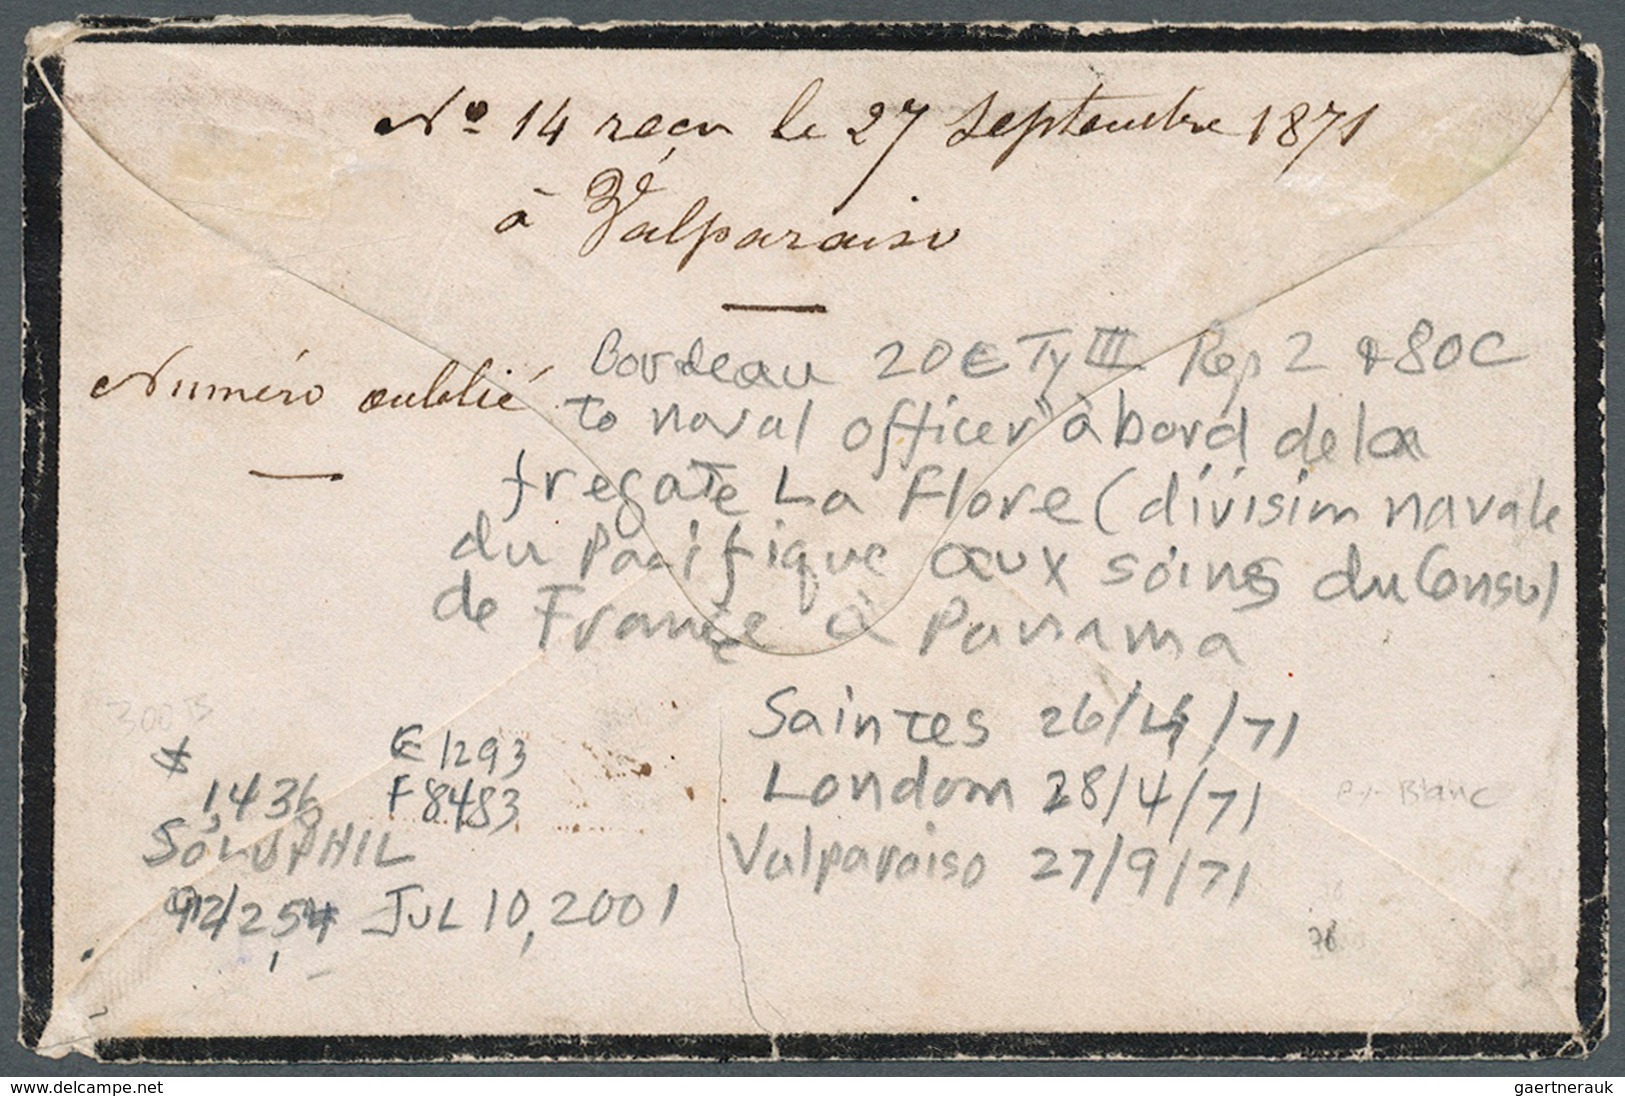 Nº 14 reçu le 27 Septembre 1871
à Valparaiso
Numéro oublié
Bordeau 20c Ty III Rep 2 + 80c
to naval officer "à bord de la
fregate La Flore (division navale
du Pacifique aux soins du Consul
de France à Panama
Saintes 26/4/71
London 28/4/71
Valparaiso 27/9/71
300
$ € 1293
1,436 F 8483
SOLUPHIL
92/254 JUL 10, 2001
ex- Blanc
76
www.delcampe.net
gaertnerauk